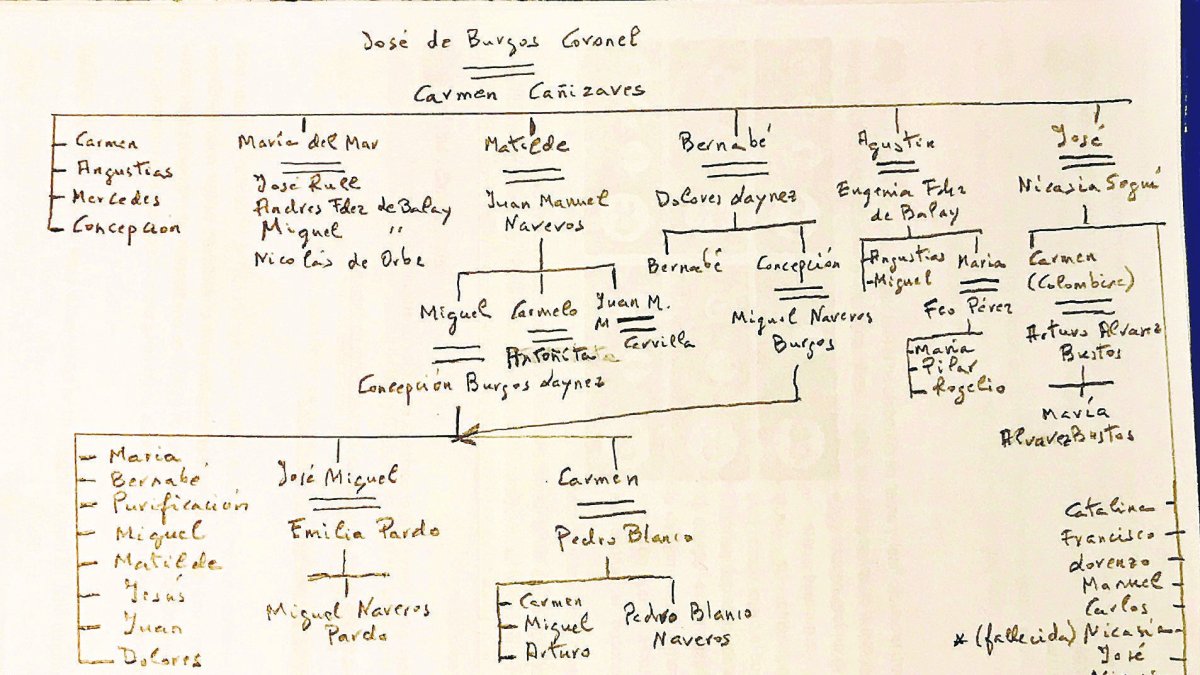 José de Burgos Coronel
Carmen Cañizares
Carmen
Angustias
Mercedes
Concepción
María del Mar
José Rull
Andres Fdez de Balay
Miguel "
Nicolás de Orbe
Matilde
Juan Manuel
Naveros
Miguel
Concepción Burgos Laynez
Carmelo
Antoñita
Juan M.
M
Cervilla
Bernabé
Dolores Laynez
Bernabé
Concepción
Miguel Naveros
Burgos
Agustín
Eugenia Fdez
de Balay
Angustias
Miguel
Maria
Feo Pérez
María
Pilar
Rogelio
José
Nicasia Seguí
Carmen
(Colombine)
Arturo Alvarez
Bustos
María
Alvarez Bustos
Catalina
Francisco
Lorenzo
Manuel
Carlos
* (fallecida) Nicasia
José
Maria
Bernabé
Purificación
Miguel
Matilde
Jesús
Juan
Dolores
José Miguel
Emilia Pardo
Miguel Naveros
Pardo
Carmen
Pedro Blanco
Carmen
Miguel
Arturo
Pedro Blanco
Naveros